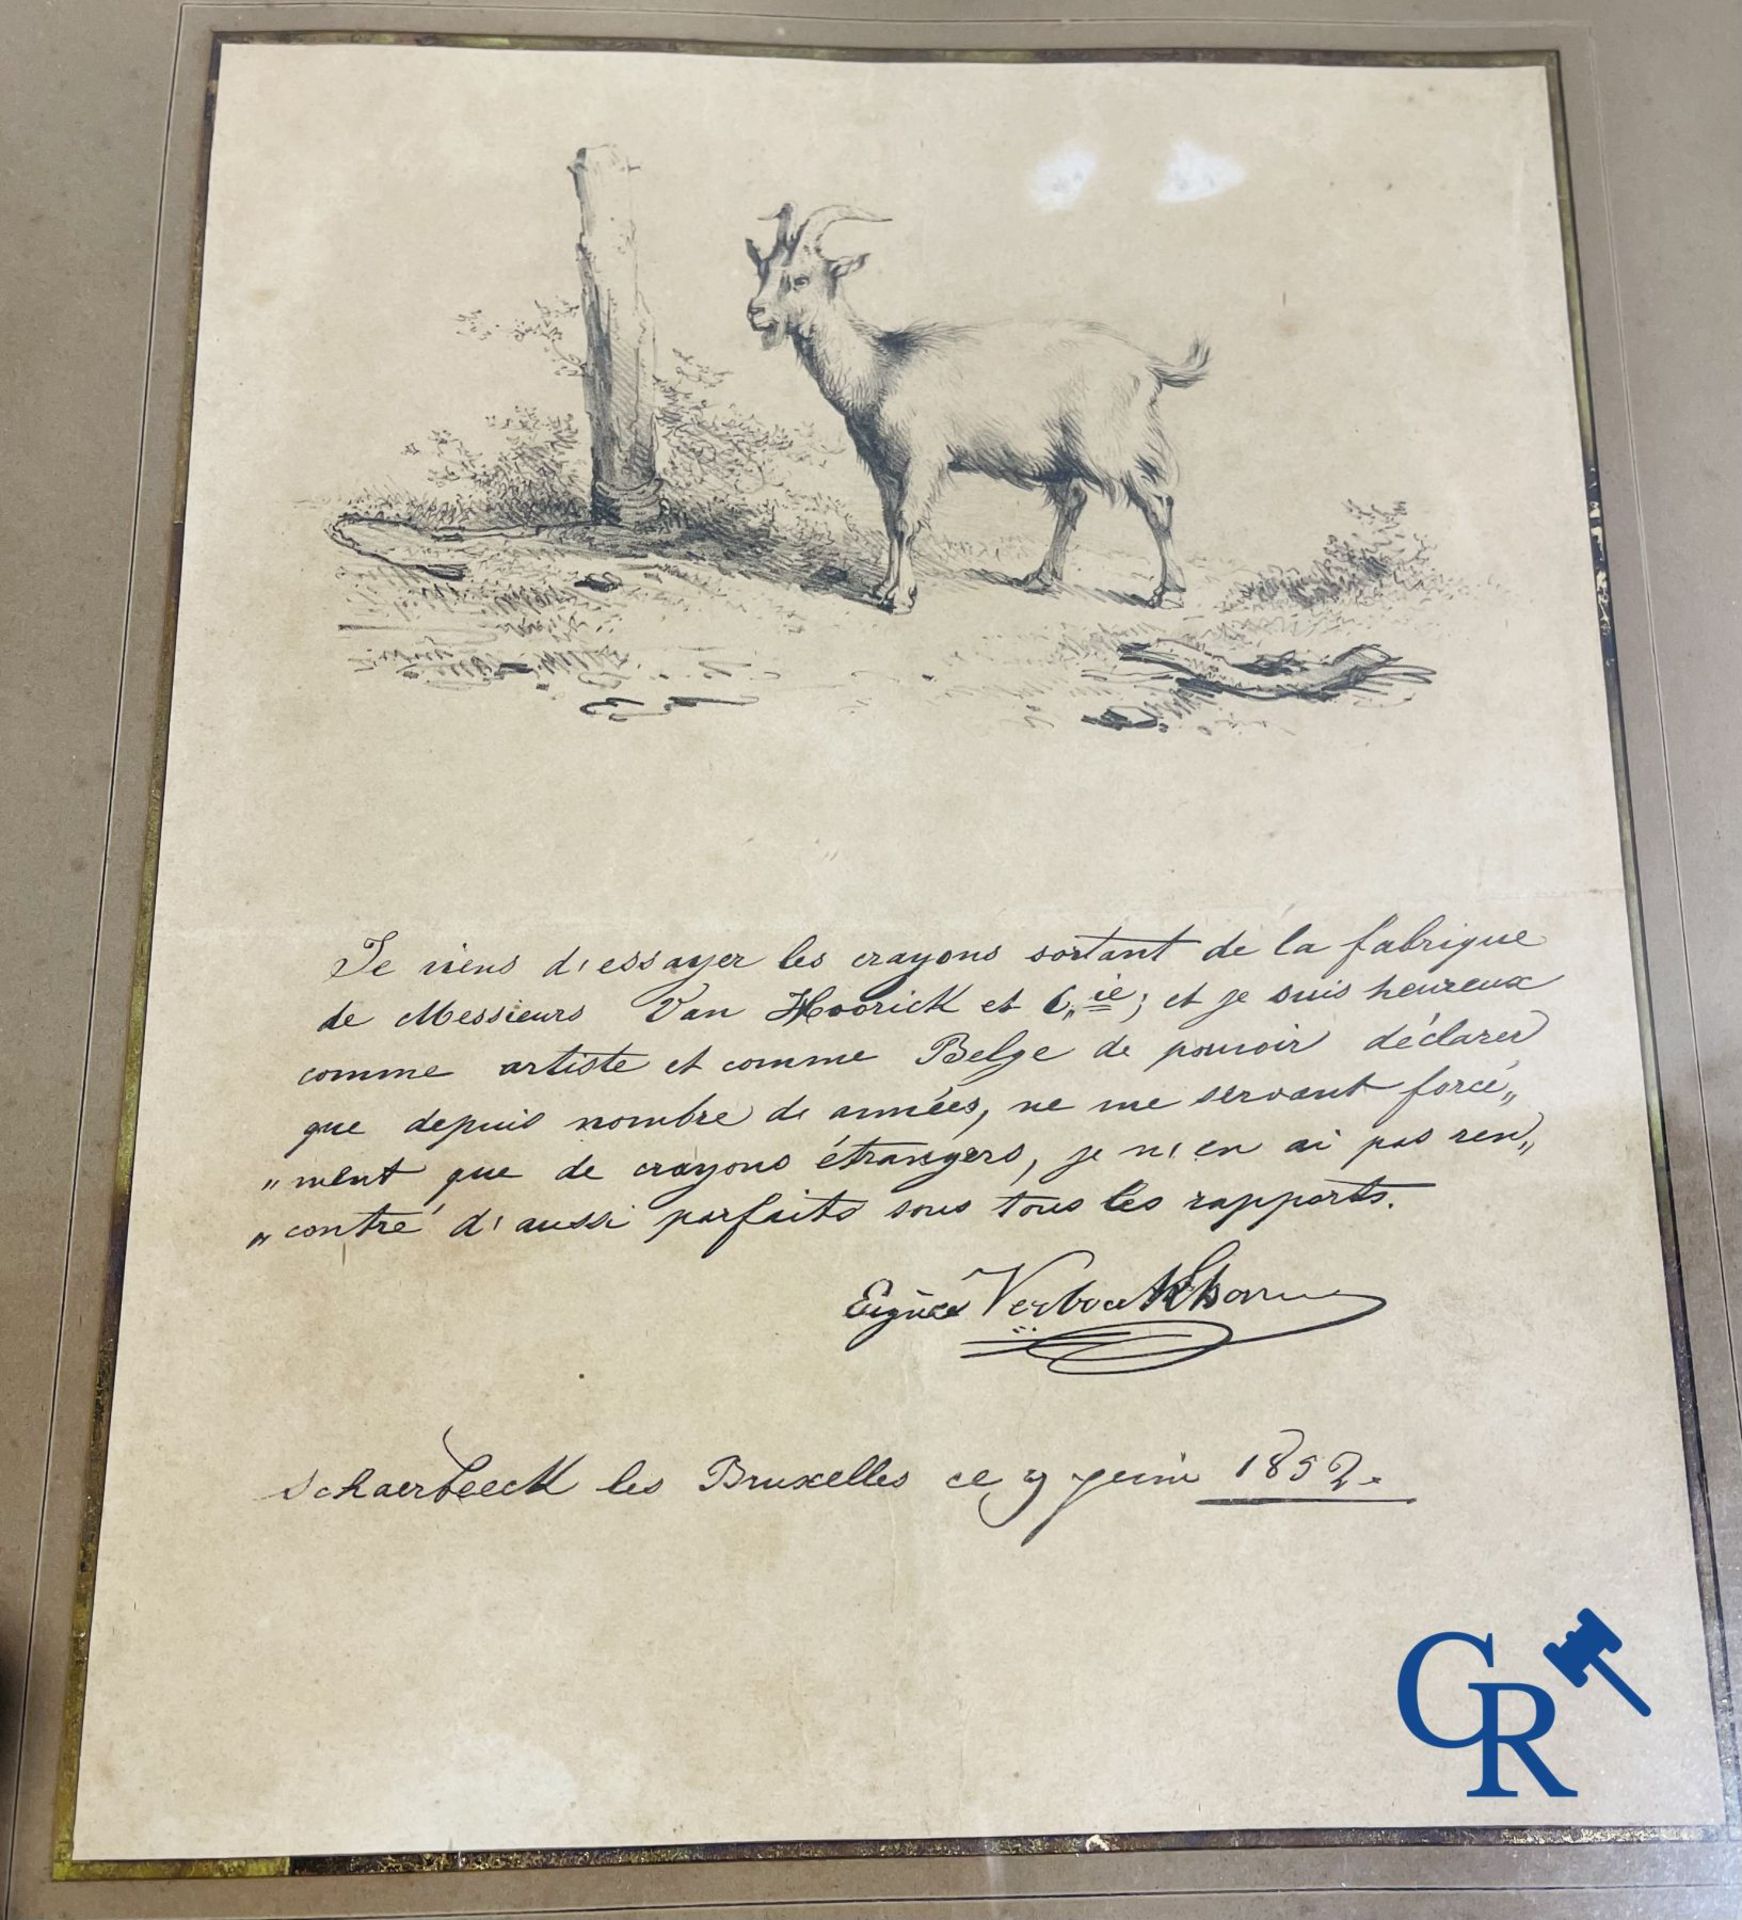 Je viens d'essayer les crayons sortant de la fabrique
de Messieurs Van Hoorick et C,,ie; et je suis heureux
comme artiste et comme Belge de pouvoir déclarer
que depuis nombre de années, ne me servant forcé,,
,,ment que de crayons étrangers, je n'en ai pas ren,,
,,contré d'aussi parfaits sous tous les rapports.
Eugène Verboeckhoven
Schaerbeeck les Bruxelles ce 9 juin 1852.
CR